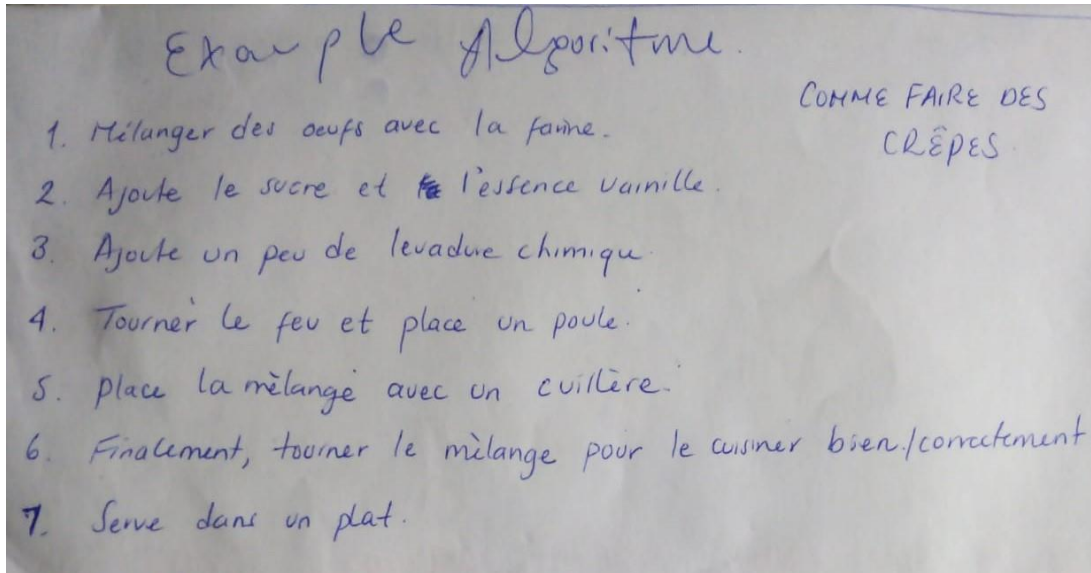 Example Algoritme.
COMME FAIRE DES
CRÊPES.
1. Mélanger des oeufs avec la farine.
2. Ajoute le sucre et l'essence vainille.
3. Ajoute un peu de levadue chimique.
4. Tourner le feu et place un poule.
5. place la mèlange avec un cuillère.
6. Finalement, tourner le mèlange pour le cuisiner bien/correctement
7. Serve dans un plat.